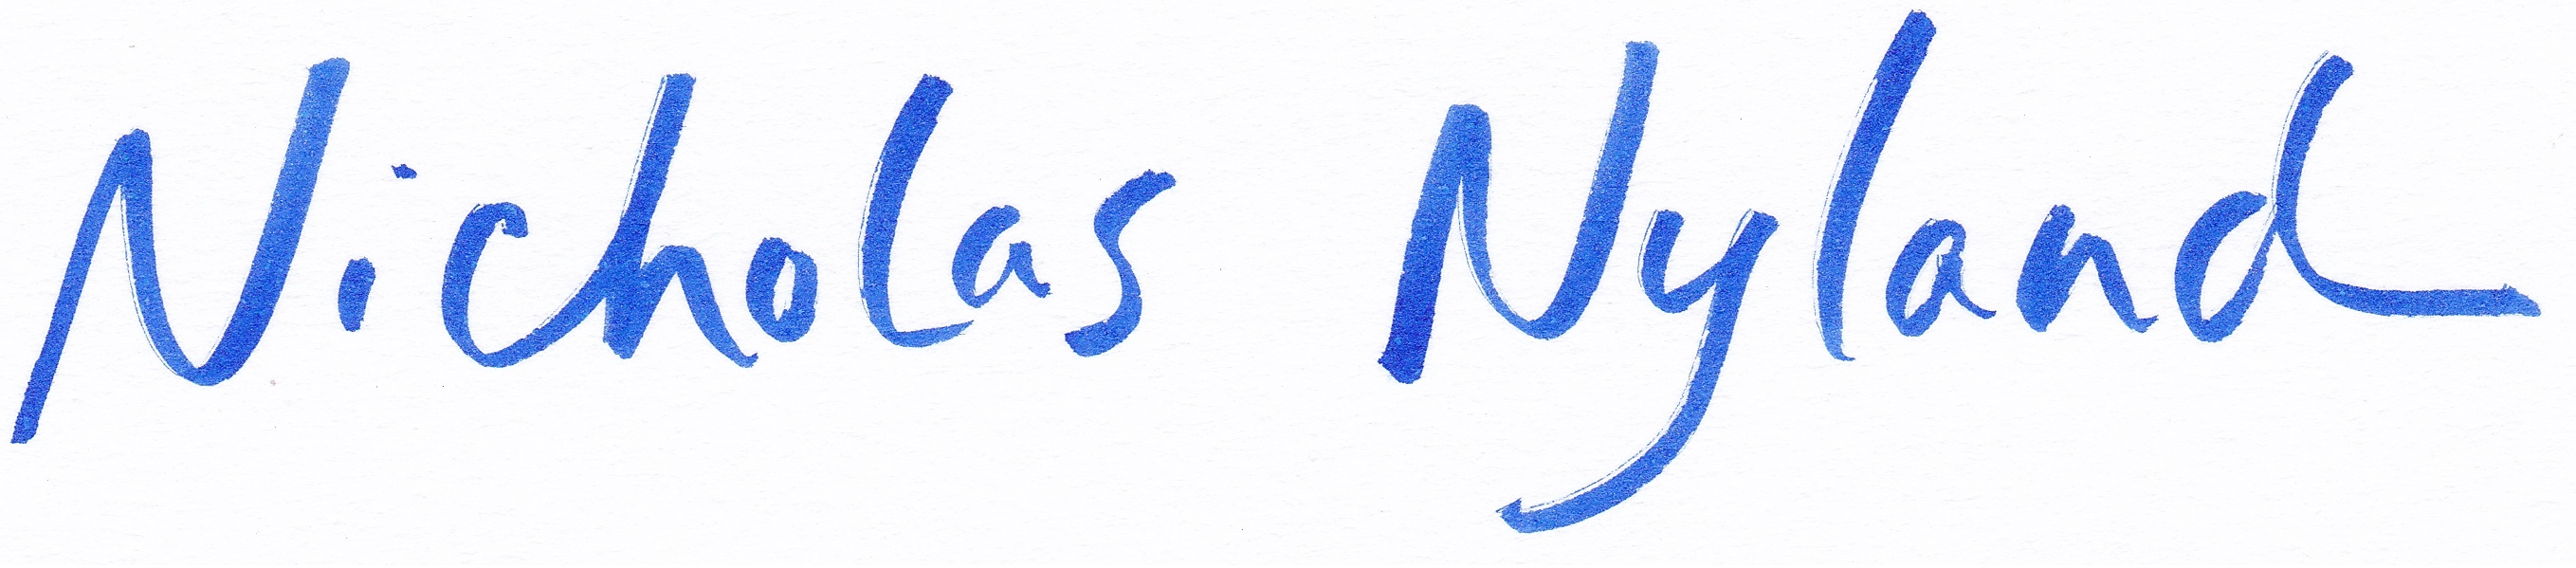 Nicholas Nyland